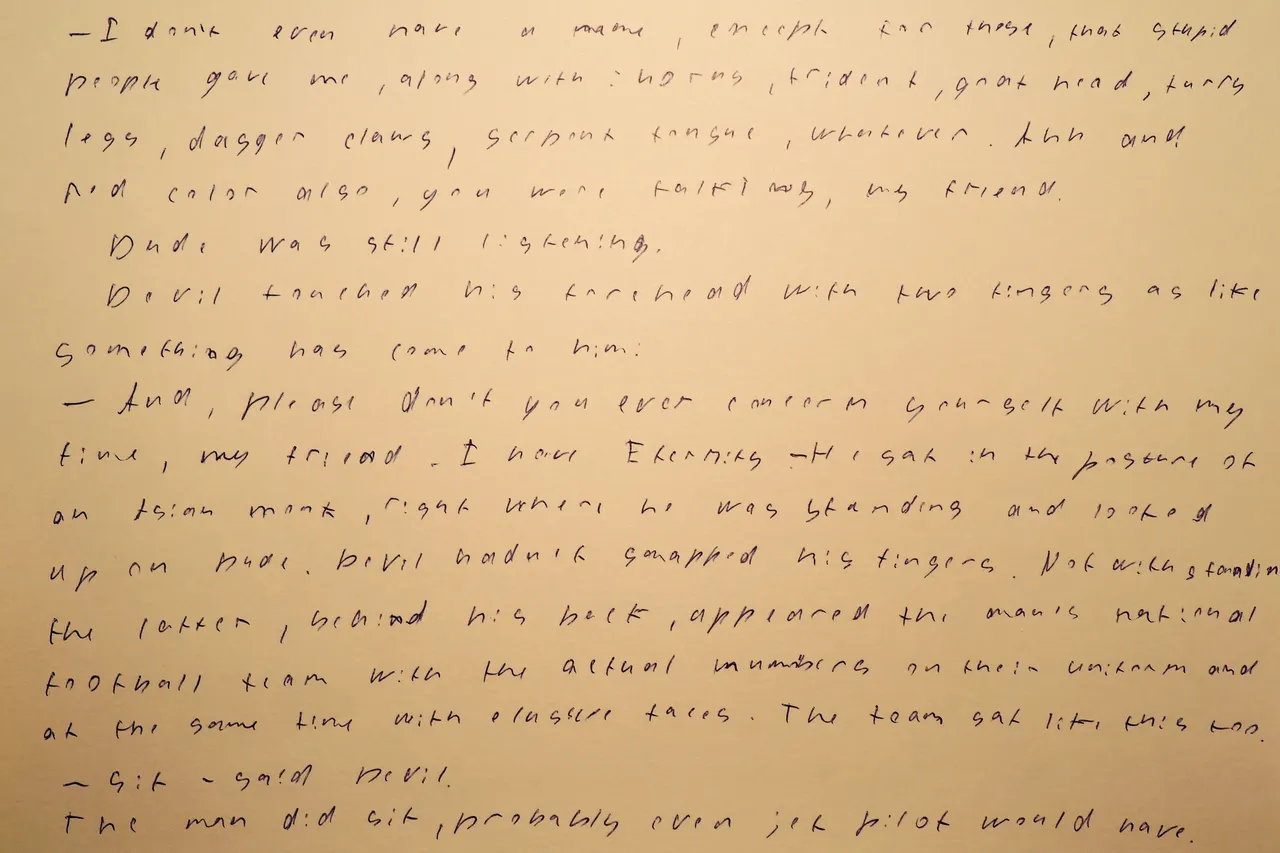 — I don't even have a name, except for those, that stupid
people gave me, along with: horns, trident, goat head, furry
legs, dagger claws, serpent tongue, whatever. Ahh and
red color also, you were talking, my friend.
Dude was still listening.
Devil touched his forehead with two fingers as like
something has come to him:
— And, please don't you ever concern yourself with my
time, my friend. I have Eternity — He sat in the posture of
an Asian monk, right where he was standing and looked
up on Dude. Devil hadn't snapped his fingers. Notwithstandin
the latter, behind his back, appeared the man's national
football team with the actual numbers on their uniform and
at the same time with elusive faces. The team sat like this too.
— Sit - said Devil.
The man did sit, probably even jet pilot would have.